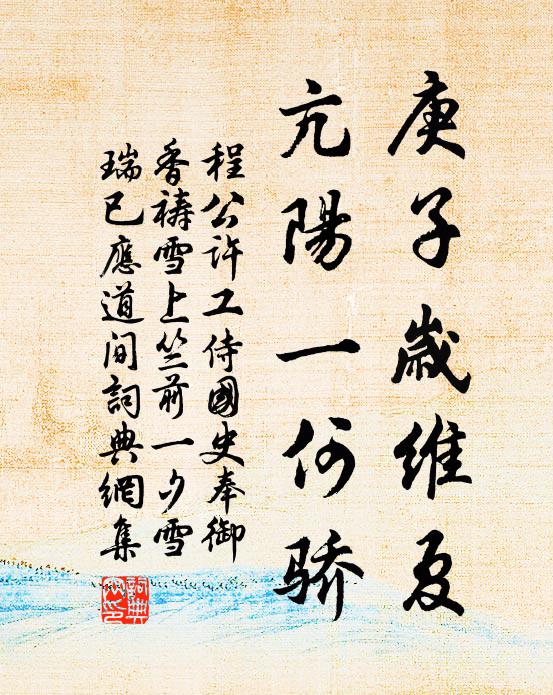 庚子歲維夏
亢陽一何骄
程公許工侍國史奉御
香禱雪上竺前一夕雪
瑞已應道間詞典網集